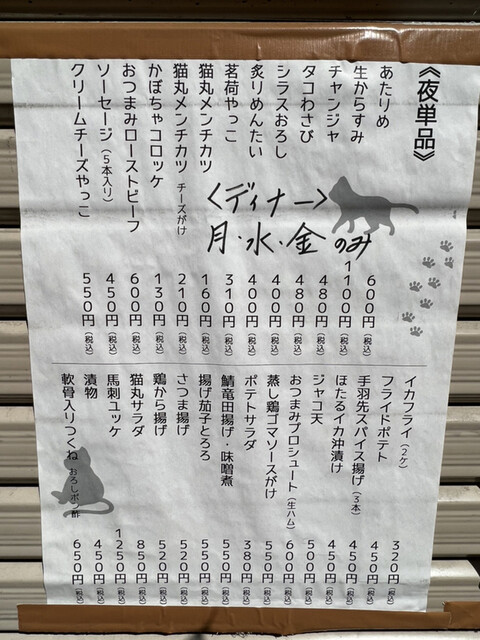 《夜単品》
あたりめ 600円(税込)
生からすみ 1100円(税込)
チャンジャ 480円(税込)
タコわさび 480円(税込)
シラスおろし 400円(税込)
炙りめんたい 400円(税込)
茗荷やっこ 310円(税込)
猫丸メンチカツ 160円(税込)
猫丸メンチカツ チーズがけ 210円(税込)
かぼちゃコロッケ 130円(税込)
おつまみローストビーフ 600円(税込)
ソーセージ(5本入り) 450円(税込)
クリームチーズやっこ 550円(税込)
〈ディナー〉
月・水・金のみ
イカフライ(2ケ) 320円(税込)
フライドポテト 450円(税込)
手羽先スパイス揚げ(3本) 450円(税込)
ほたるイカ沖漬け 450円(税込)
ジャコ天 500円(税込)
おつまみプロシュート(生ハム) 600円(税込)
蒸し鶏ゴマソースがけ 550円(税込)
ポテトサラダ 380円(税込)
鯖竜田揚げ・味噌煮 550円(税込)
揚げ茄子とろろ 550円(税込)
さつま揚げ 520円(税込)
鶏から揚げ 520円(税込)
猫丸サラダ 850円(税込)
馬刺ユッケ 1250円(税込)
漬物 450円(税込)
軟骨入りつくね おろしポン酢 650円(税込)